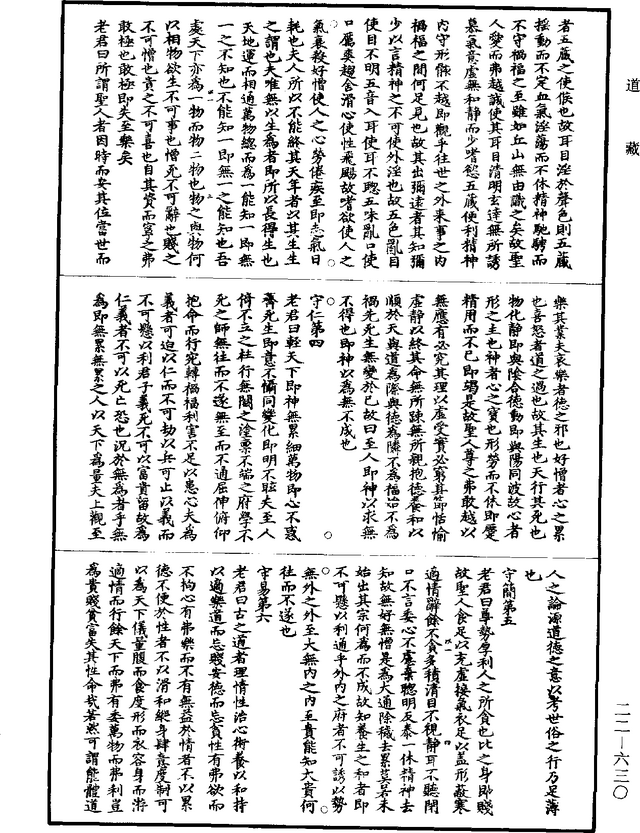 道藏
者五藏之使候也故耳目淫於聲色則五藏
搖動而不定血氣淫蕩而不休精神馳騁而
不守禍福之至雖如丘山無由識之矣故聖
人愛而弗越誠使其耳目清明玄達無所誘
慕氣意虛無和靜而少嗜慾五藏便利精神
內守形骸不越即觀乎往世之外來事之內
禍福之間何足見也故其出彌遠者其知彌
少以言精神之不可使外淫也故五色亂目
使目不明五音入耳使耳不聰五味亂口使
口厲爽趨舍滑心使性飛颺故嗜欲使人之
氣衰殺好憎使人之心勞倦疾至即志氣日
耗也夫人所以不能終其天年者以其生生
之謂也夫唯無以生為者即所以長得生也
天地運而相通萬物總而為一能知一即無
一之不知也不能知一即無一之能知也吾
處天下亦為一物而物二物也物之與物何
以相物欲生不可事也憎死不可辭也賤之
不可憎也貴之不可喜也自其資而寧之弗
敢極也敢極即失至樂矣
老君曰所謂聖人者因時而安其位當世而
樂其業夫哀樂者德之邪也好憎者心之累
也喜怒者道之過也故其生也天行其死也
物化靜即與陰合德動即與陽同波故心者
形之主也神者心之寶也形勞而不休即蹷
精用而不已即竭是故聖人尊之弗敢越以
無應有必究其理以虛受實必窮其節恬愉
虛靜以終其命無所疎無所親抱德養和以
順於天與道為際與德為隣不為福始不為
禍先死生無變於己故曰至人即神以求無
不得也即神以為無不成也
守仁第四
老君曰輕天下即神無累細萬物即心不惑
齊死生即意不懾同變化即明不眩夫至人
倚不立之柱行無關之塗禀不竭之府學不
死之師無往而不遂無至而不通屈伸俯仰
抱命而行宛轉禍福利害不足以患心夫為
義者可迫以仁而不可劫以兵可止以義而
不可懸以利君子義死不可以富貴留故為
仁義者不可以死亡恐也況於無為者乎無
為即無累無累之人以天下為量夫上觀至
人之論源道德之意以考世俗之行乃足薄
也
守簡第五
老君曰尊勢厚利人之所貪也比之身即賤
故聖人食足以充虛接氣衣足以蓋形蔽寒
適情辭餘不貪多積清目不視靜耳不聽閉
口不言委心不慮棄聰明反泰一休精神去
知故無好無憎是為大通除穢去累莫若未
始出其宗何為而不成故知養生之和者即
不可懸以利通乎外內之府者不可誘以勢
無外之外至大無內之內至貴能知大貴何
往而不遂也
守易第六
老君曰古之道者理情性治心術養以和持
以適樂道而忘賤安德而忘貧性有弗欲而
不拘心有弗樂而不有無益於情者不以累
德不便於性者不以滑和縱身肆意度制可
以為天下儀量腹而食度形而衣容身而游
適情而行餘天下而弗有委萬物而弗利豈
為貴賤貧富失其性命哉若然可謂能體道
二二—六三〇